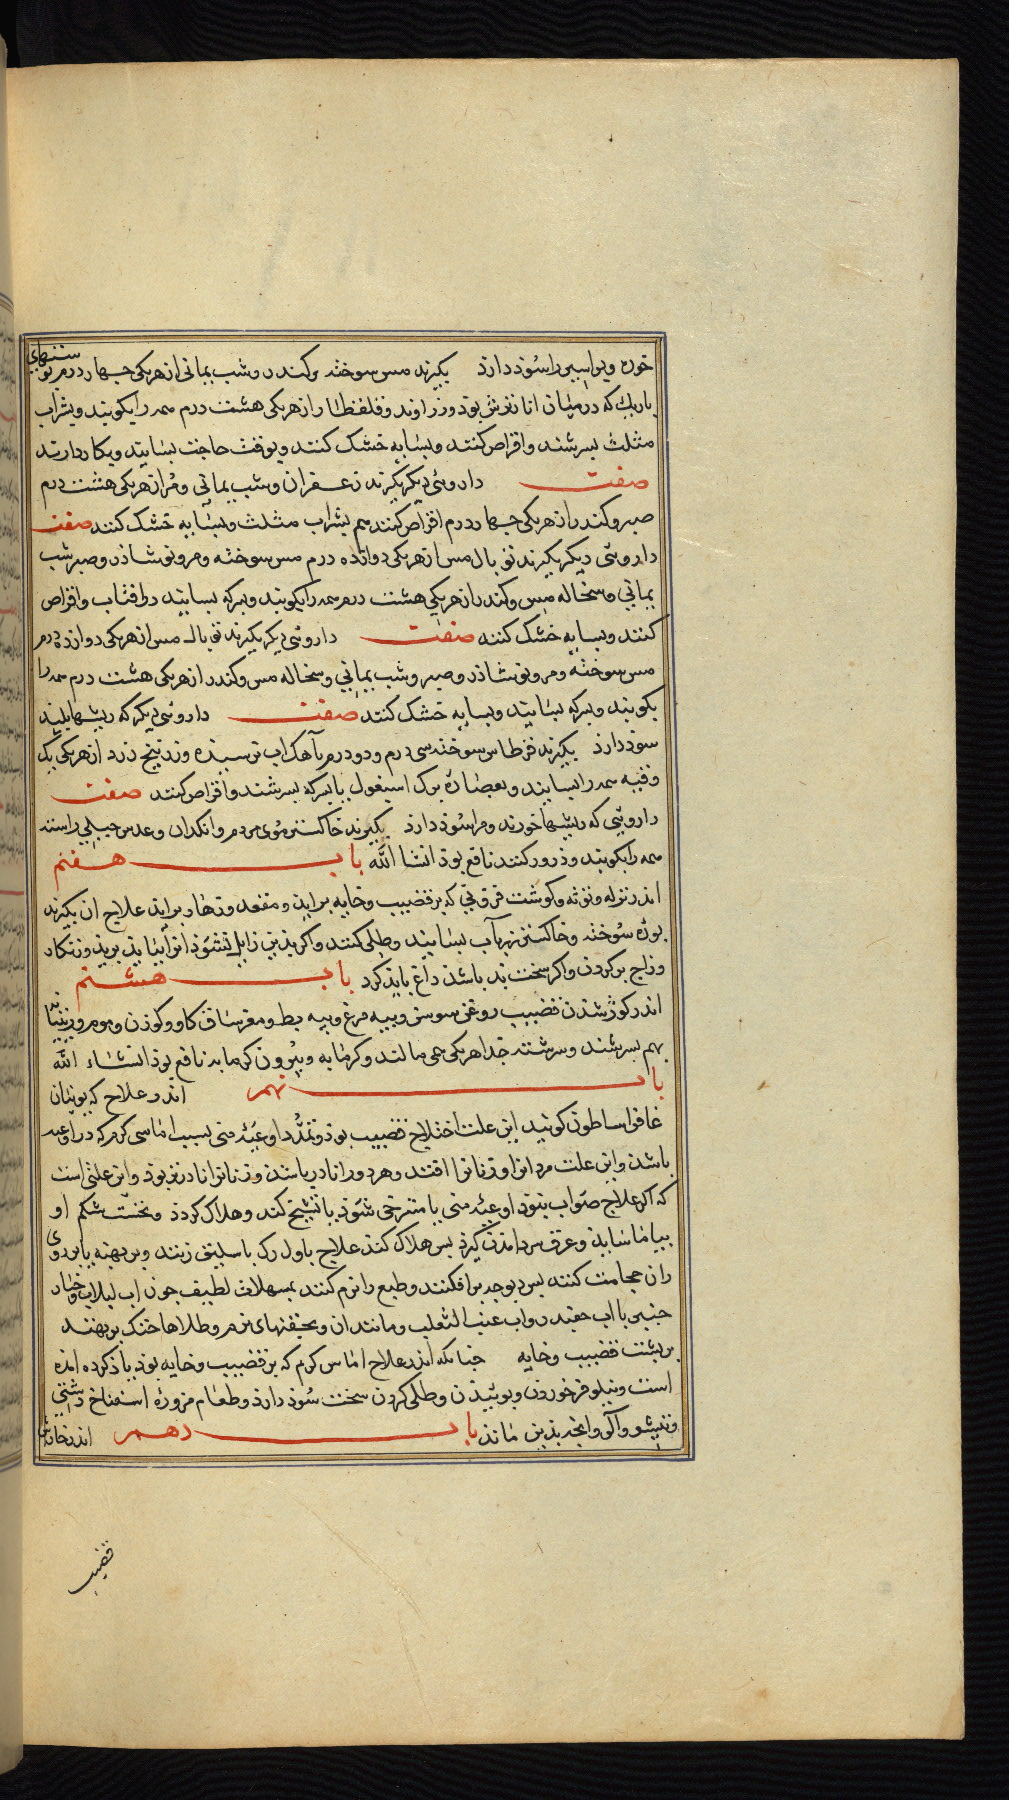 خوره و پراسیر را سوذ دارذ بگیرند مس سوخته و کندر و شب یمانی از هر یکی چهار درم توبهاء
باریک که در میان انار ترش بوذ و زراوند و قلقطار از هر یکی هشت درم همه را بکوبند و بشراب
مثلث بسرشند و اقراص کنند و بسایه خشک کنند و بوقت حاجت بسایند و بکار دارند
صفت داروئی دیکر بگیرند زعفران و شب یمانی و مر از هر یکی هشت درم
صبر و کندر از هر یکی چهار درم اقراص کنند هم بشراب مثلث و بسایه خشک کنند صفت
داروئی دیکر بگیرند توبال مس از هر یکی دوازده درم مس سوخته و مر و نوشاذر و صبر و شب
یمانی و سخاله مس و کندر از هر یکی هشت درم همه را بکوبند و بسرکه بسایند در افتاب و اقراص
کنند و بسایه خشک کنند صفت داروئی دیکر بگیرند توبال مس از هر یکی دوازده درم
مس سوخته و مر و نوشاذر و صبر و شب یمانی و سخاله مس و کندر از هر یکی هشت درم همه را
بکوبند و بسرکه بسایند و بسایه خشک کنند صفت داروئی دیکر که ریشهاء پلید
سوذ دارذ بگیرند قرطاس سوخته سی درم و دو درم آهک اب نرسیذه و زرنیخ زرد از هر یکی یک
وقیه همه را بسایند و بعصاره برک اسبغول یا بسرکه بسرشند و اقراص کنند صفت
داروئی که ریشها خورنده را سوذ دارذ بگیرند خاکستر موی مردم و انکدان و عدس جبلی راستا
همه را بکوبند و ذرور کنند نافع بوذ انشا الله باب هفتم
اندر تولول و توثه و کوشت فزونی که بر قضیب و خایه برایذ و مقعد و زهار برایذ علاج ان بگیرند
بوره سوخته و خاکستر رز بآب بسایند و طلی کنند و اکر بذین زایل نشوذ انرا بباید بریذ و زنکار
و زاج بر کردن و اکر سخت بذ باشذ داغ بایذ کرد باب هشتم
اندر کوژ شذن قضیب روغن سوسن و پیه مرغ و پیه بط و مغز ساق کاو و کوزن و موم و زیتیانه
بهم بسرشند و سرشته جدا هر یکی همی مالند و کرمابه و بیرون کرمابه نافع بوذ انشاء الله
باب نهم اندر علاج که یونیان
غافراساطون کویند این علت اختلاج قضیب بوذ و تمدد اوعیه منی بسبب اماسی کرم که در اوعیه
باشذ و این علت مردانرا و زنانرا افتد و هر دو را نادر باشذ و زنانرا نادرتر بوذ و این علتی است
که اکر علاج صواب نبوذ اوعیه منی یا مترخی شوذ یا تشنج کند و هلاک کردذ و نخست شکم او
بیاماسایذ و عرق سرد امذن کیرذ پس هلاک کند علاج باول رک باسلیق زنند و بر پهنه یا بر دوی
ران حجامت کنند پس دیوچه برافکنند و طبع را نرم کنند بمسهلات لطیف چون اب لبلاب و خیار
چنبر با اب چغندر و اب عنب الثعلب و مانند ان و بحقنهای نرم و طلاها خنک بر نهند
بر پشت قضیب و خایه چنانکه اندر علاج اماس کرم که بر قضیب و خایه بوذ یاذ کرده امذه
است و نیلوفر خوردن و بوییدن و طلی کردن سخت سوذ دارذ و طعام مزوره اسفناخ دشتی
و تیشو و آلو و انچه بذین ماند باب دهم اندر خارش
قضیب